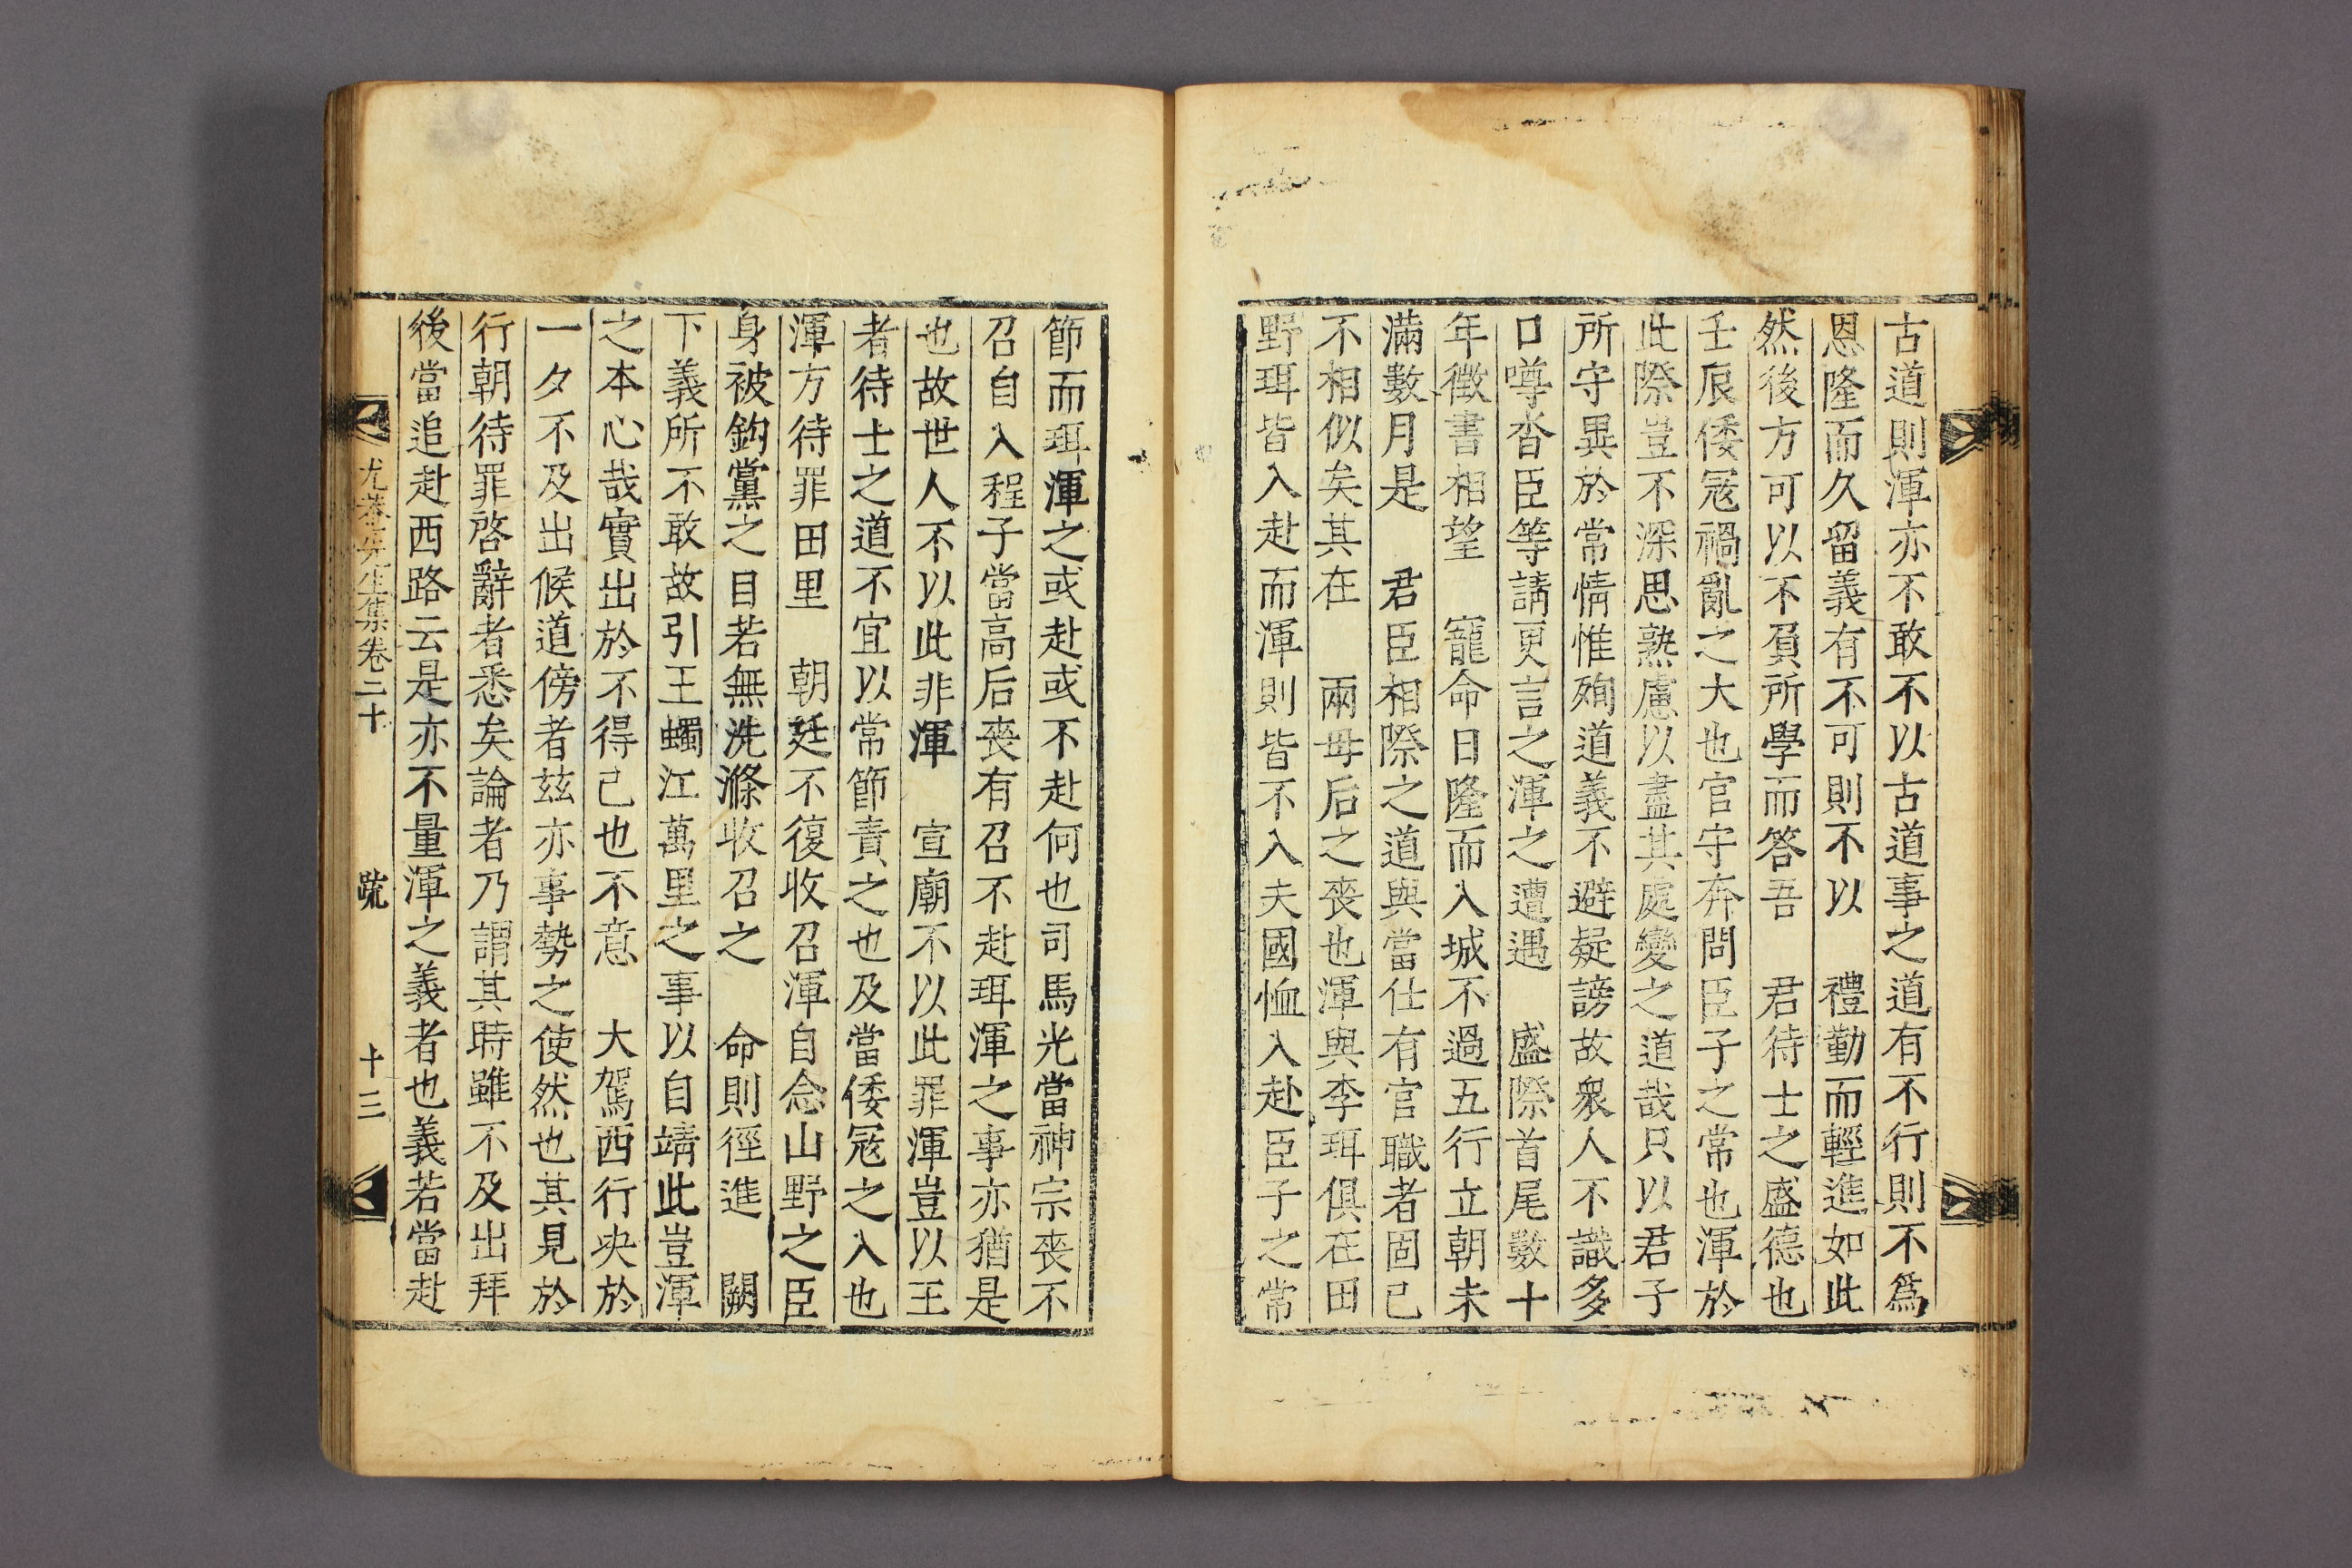 古道則渾亦不敢不以古道事之道有不行則不爲
恩隆而久留義有不可則不以 禮勤而輕進如此
然後方可以不負所學而答吾 君待士之盛德也
壬辰倭冦禍亂之大也官守奔問臣子之常也渾於
此際豈不深思熟慮以盡其處變之道哉只以君子
所守異於常情惟殉道義不避疑謗故衆人不識多
口噂沓臣等請更言之渾之遭遇 盛際首尾數十
年徵書相望 寵命日隆而入城不過五行立朝未
滿數月是 君臣相際之道與當仕有官職者固已
不相似矣其在 兩母后之喪也渾與李珥俱在田
野珥皆入赴而渾則皆不入夫國恤入赴臣子之常
節而珥渾之或赴或不赴何也司馬光當神宗喪不
召自入程子當高后喪有召不赴珥渾之事亦猶是
也故世人不以此非渾 宣廟不以此罪渾豈以王
者待士之道不宜以常節責之也及當倭冦之入也
渾方待罪田里 朝廷不復收召渾自念山野之臣
身被鈎黨之目若無洗滌收召之 命則徑進 闕
下義所不敢故引王蠋江萬里之事以自靖此豈渾
之本心哉實出於不得已也不意 大駕西行央於
一夕不及出候道傍者玆亦事勢之使然也其見於
行朝待罪啓辭者悉矣論者乃謂其時雖不及出拜
後當追赴西路云是亦不量渾之義者也義若當赴
尤菴先生集卷二十 䟽 十三